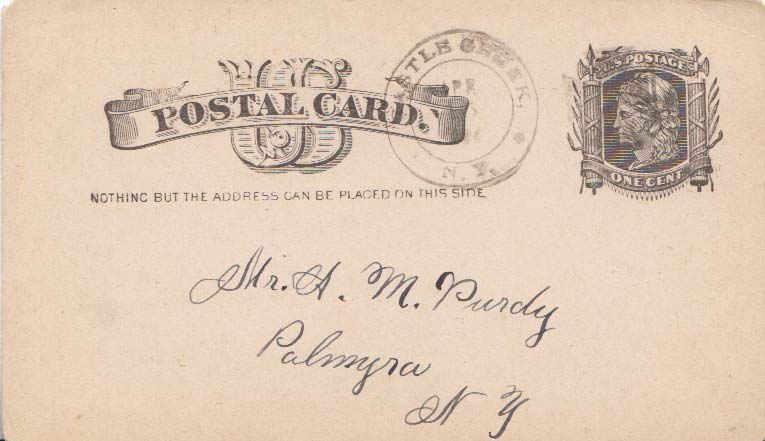 US
POSTAL CARD.
NOTHING BUT THE ADDRESS CAN BE PLACED ON THIS SIDE
CASTLE CREEK,
APR
N. Y.
U.S. POSTAGE
ONE CENT
Mr. H. M. Purdy
Palmyra
N Y